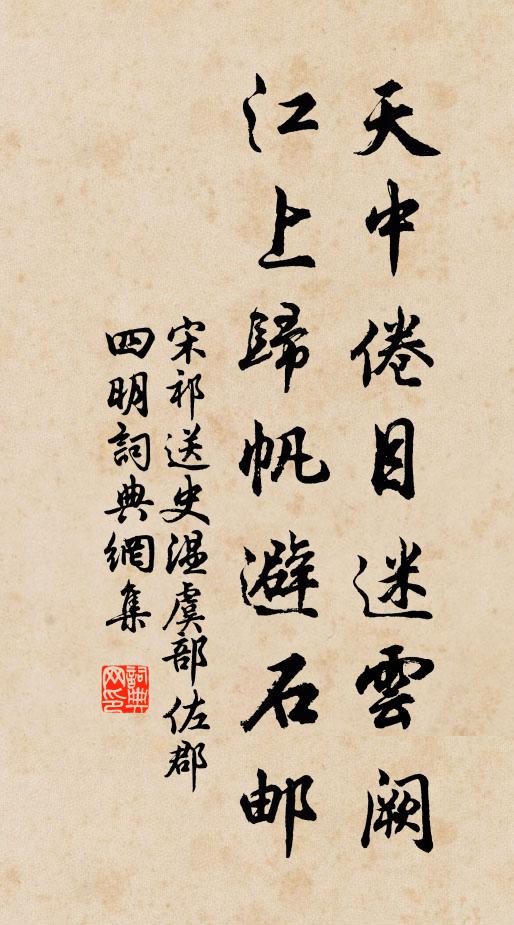 天中倦目迷雲闕
江上歸帆避石邮
宋祁送史温虞部佐郡
四明詞典網集
詞典网印